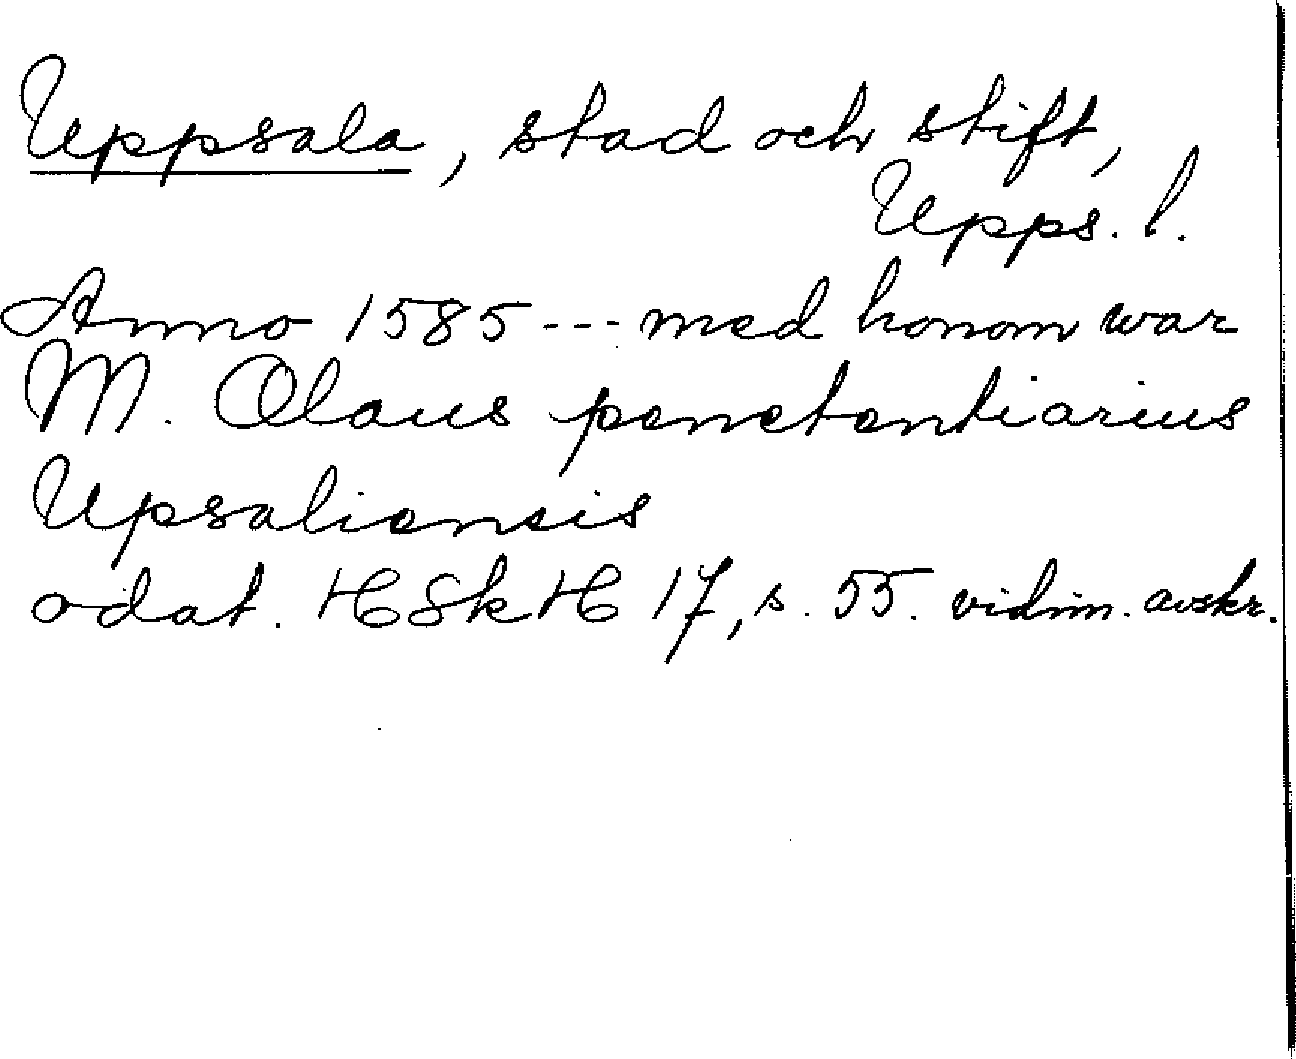 Uppsala, stad och stift,
Upps. l.
Anno 1585 --- med honom war
M. Olaus penetentiarius
Upsaliensis
odat. HSkH 17, s. 55. vidim. avskr.